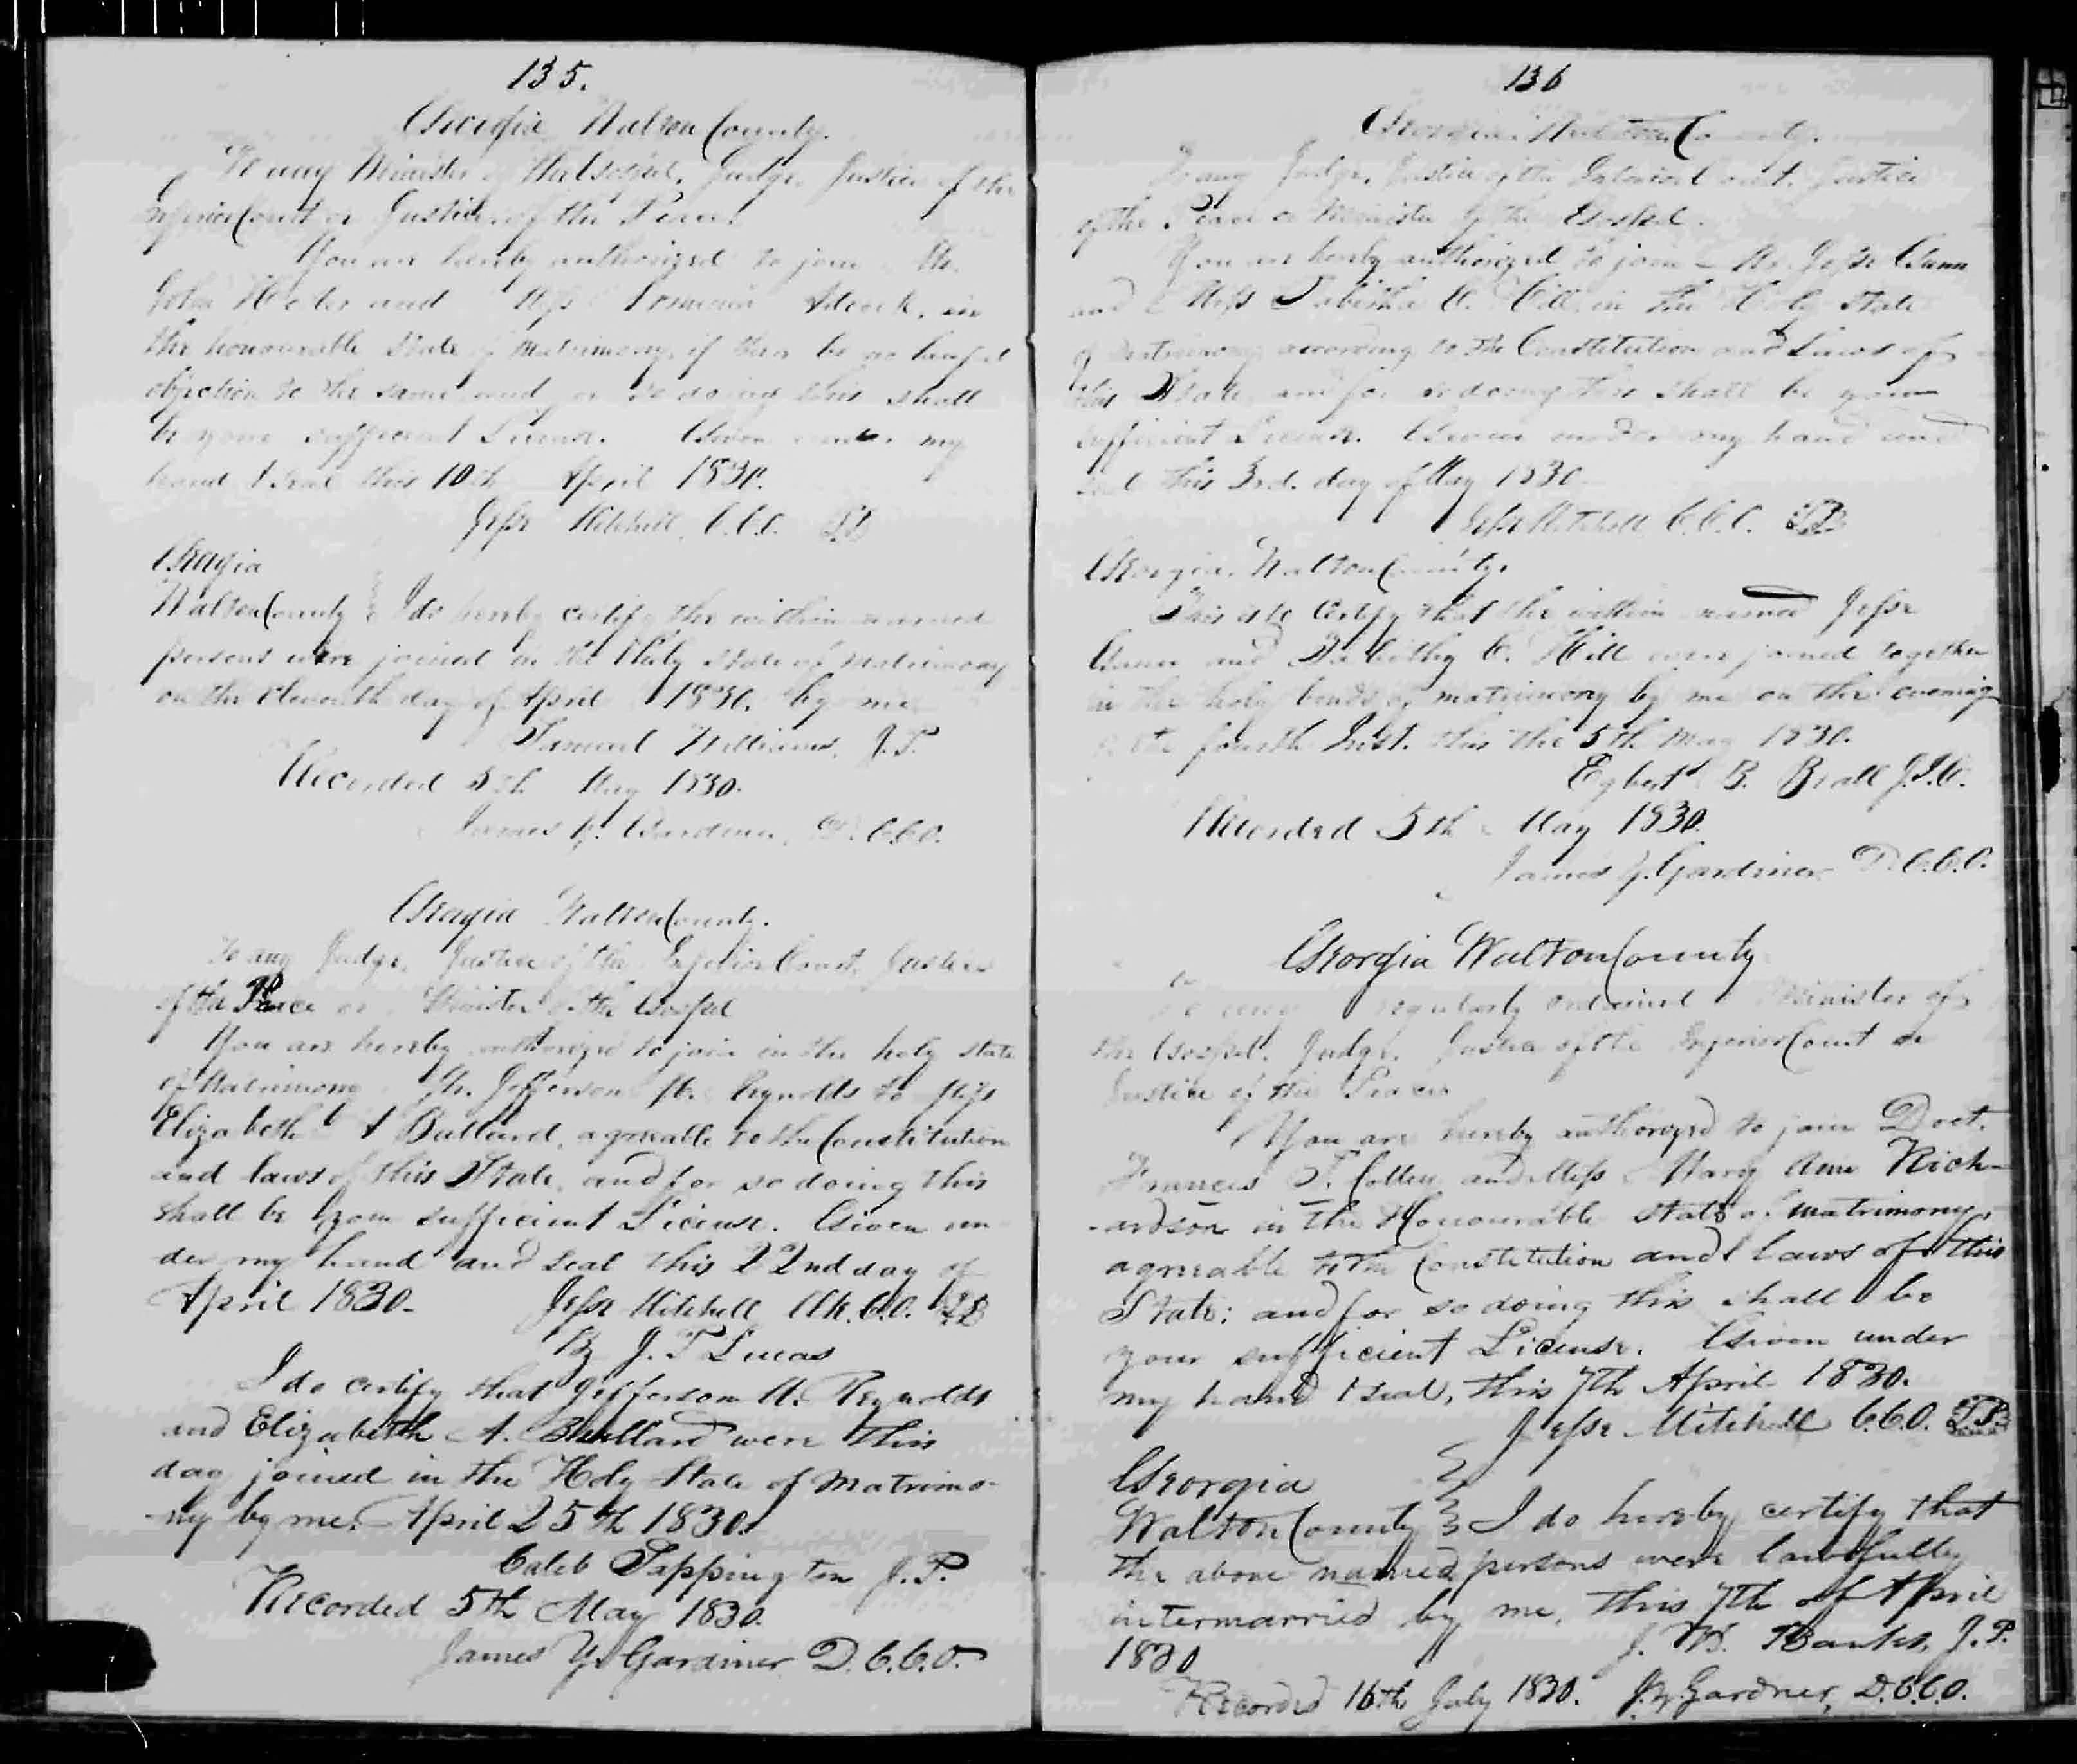 135.
Georgia Walton County.
To any Minister of the Gospel, Judge, Justice of the
Inferior Court or Justice of the Peace.
You are hereby authorized to join Mr.
John and Miss Adcock, in
the honourable State of Matrimony, if there be no lawful
objection to the same and for so doing this shall
be your sufficient License. Given under my
hand & Seal this 10th April 1830.
Jesse Mitchell, C.C.O. LS
Georgia
Walton County } I do hereby certify the within named
persons were joined in the Holy State of Matrimony
on the Eleventh day of April 1830. by me
Samuel Williams, J.P.
Recorded 5th May 1830.
James Y. Gardiner, D.C.C.O.
Georgia Walton County.
To any Judge, Justice of the Inferior Court, Justice
of the Peace or Minister of the Gospel
You are hereby authorized to join in the holy state
of Matrimony Mr. Jefferson Reynolds to Miss
Elizabeth A Bullard, agreeable to the Constitution
and laws of this State, and for so doing this
shall be your sufficient License. Given un
der my hand and seal this 22nd day of
April 1830. Jesse Mitchell Clk. C.O. LS
By J. T Lucas
I do certify that Jefferson Reynolds
and Elizabeth A. Bullard were this
day joined in the Holy State of Matrimo-
ny by me. April 25th 1830.
Caleb Tappington J.P.
Recorded 5th May 1830.
James Y. Gardiner D.C.C.O.
136
Georgia. Walton County.
To any Judge, Justice of the Inferior Court, Justice
of the Peace or Minister of the Gospel.
You are hereby authorized to join - Mr. Jesse Gunn
and Miss Tabitha C. Hill, in the Holy State
of Matrimony according to the Constitution and Laws of
this State, and for so doing this shall be your
sufficient License. Given under my hand and
seal this 3rd. day of May 1830.
Jesse Mitchell C.C.O. LS
Georgia. Walton County.
This is to Certify that the within named Jesse
Gunn and Tabitha C. Hill were joined together
in the holy bonds of matrimony by me on the evening
of the fourth Inst. this the 5th May 1830.
Egbert B. Beall J.I.C.
Recorded 5th May 1830.
James Y. Gardiner D.C.C.O.
Georgia Walton County
To any regularly ordained Minister of
the Gospel, Judge, Justice of the Inferior Court or
Justice of the Peace
You are hereby authorized to join Doct.
Frances T. Collen and Miss Mary Ann Rich-
-ardson in the Honourable state of matrimony,
agreeable to the Constitution and laws of this
State: and for so doing this shall be
your sufficient License. Given under
my hand & seal, this 7th April 1830.
Jesse Mitchell C.C.O. LS
Georgia
Walton County } I do hereby certify that
the above named persons were lawfully
intermarried by me, this 7th of April
1830 J. W. Banks, J.P.
Recorded 16th July 1830. J.Y. Gardner, D.C.C.O.